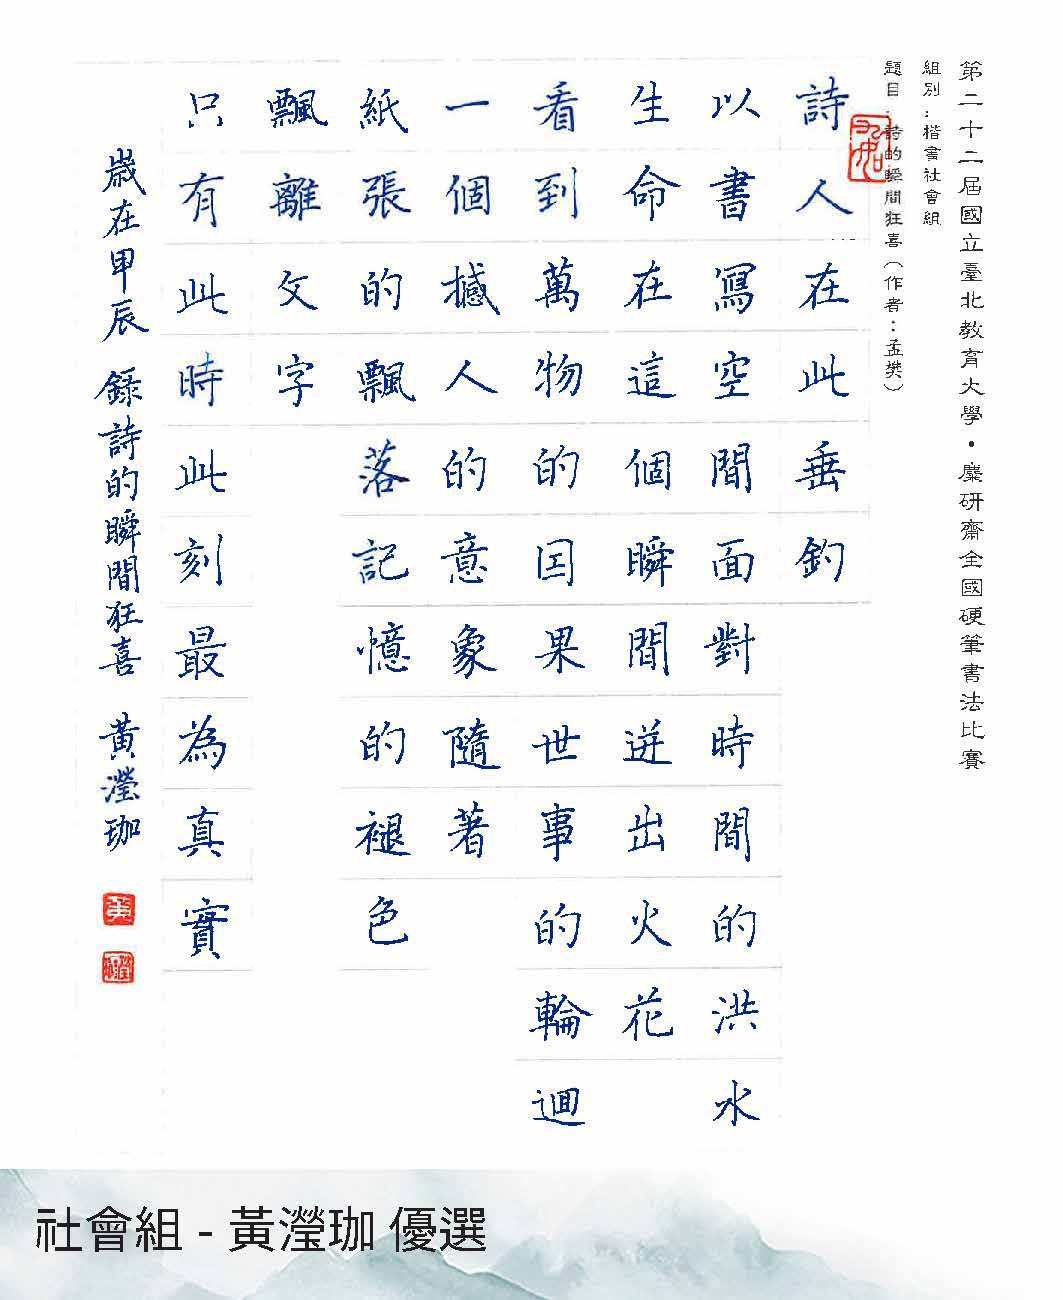 第二十二屆國立臺北教育大學・麋研齋全國硬筆書法比賽
組別：楷書社會組
題目：詩的瞬間狂喜（作者：孟樊）
詩人在此垂釣
以書寫空間面對時間的洪水
生命在這個瞬間迸出火花
看到萬物的因果世事的輪迴
一個撼人的意象隨著
紙張的飄落記憶的褪色
飄離文字
只有此時此刻最為真實
歲在甲辰 錄詩的瞬間狂喜 黃瀅珈
社會組 - 黃瀅珈 優選